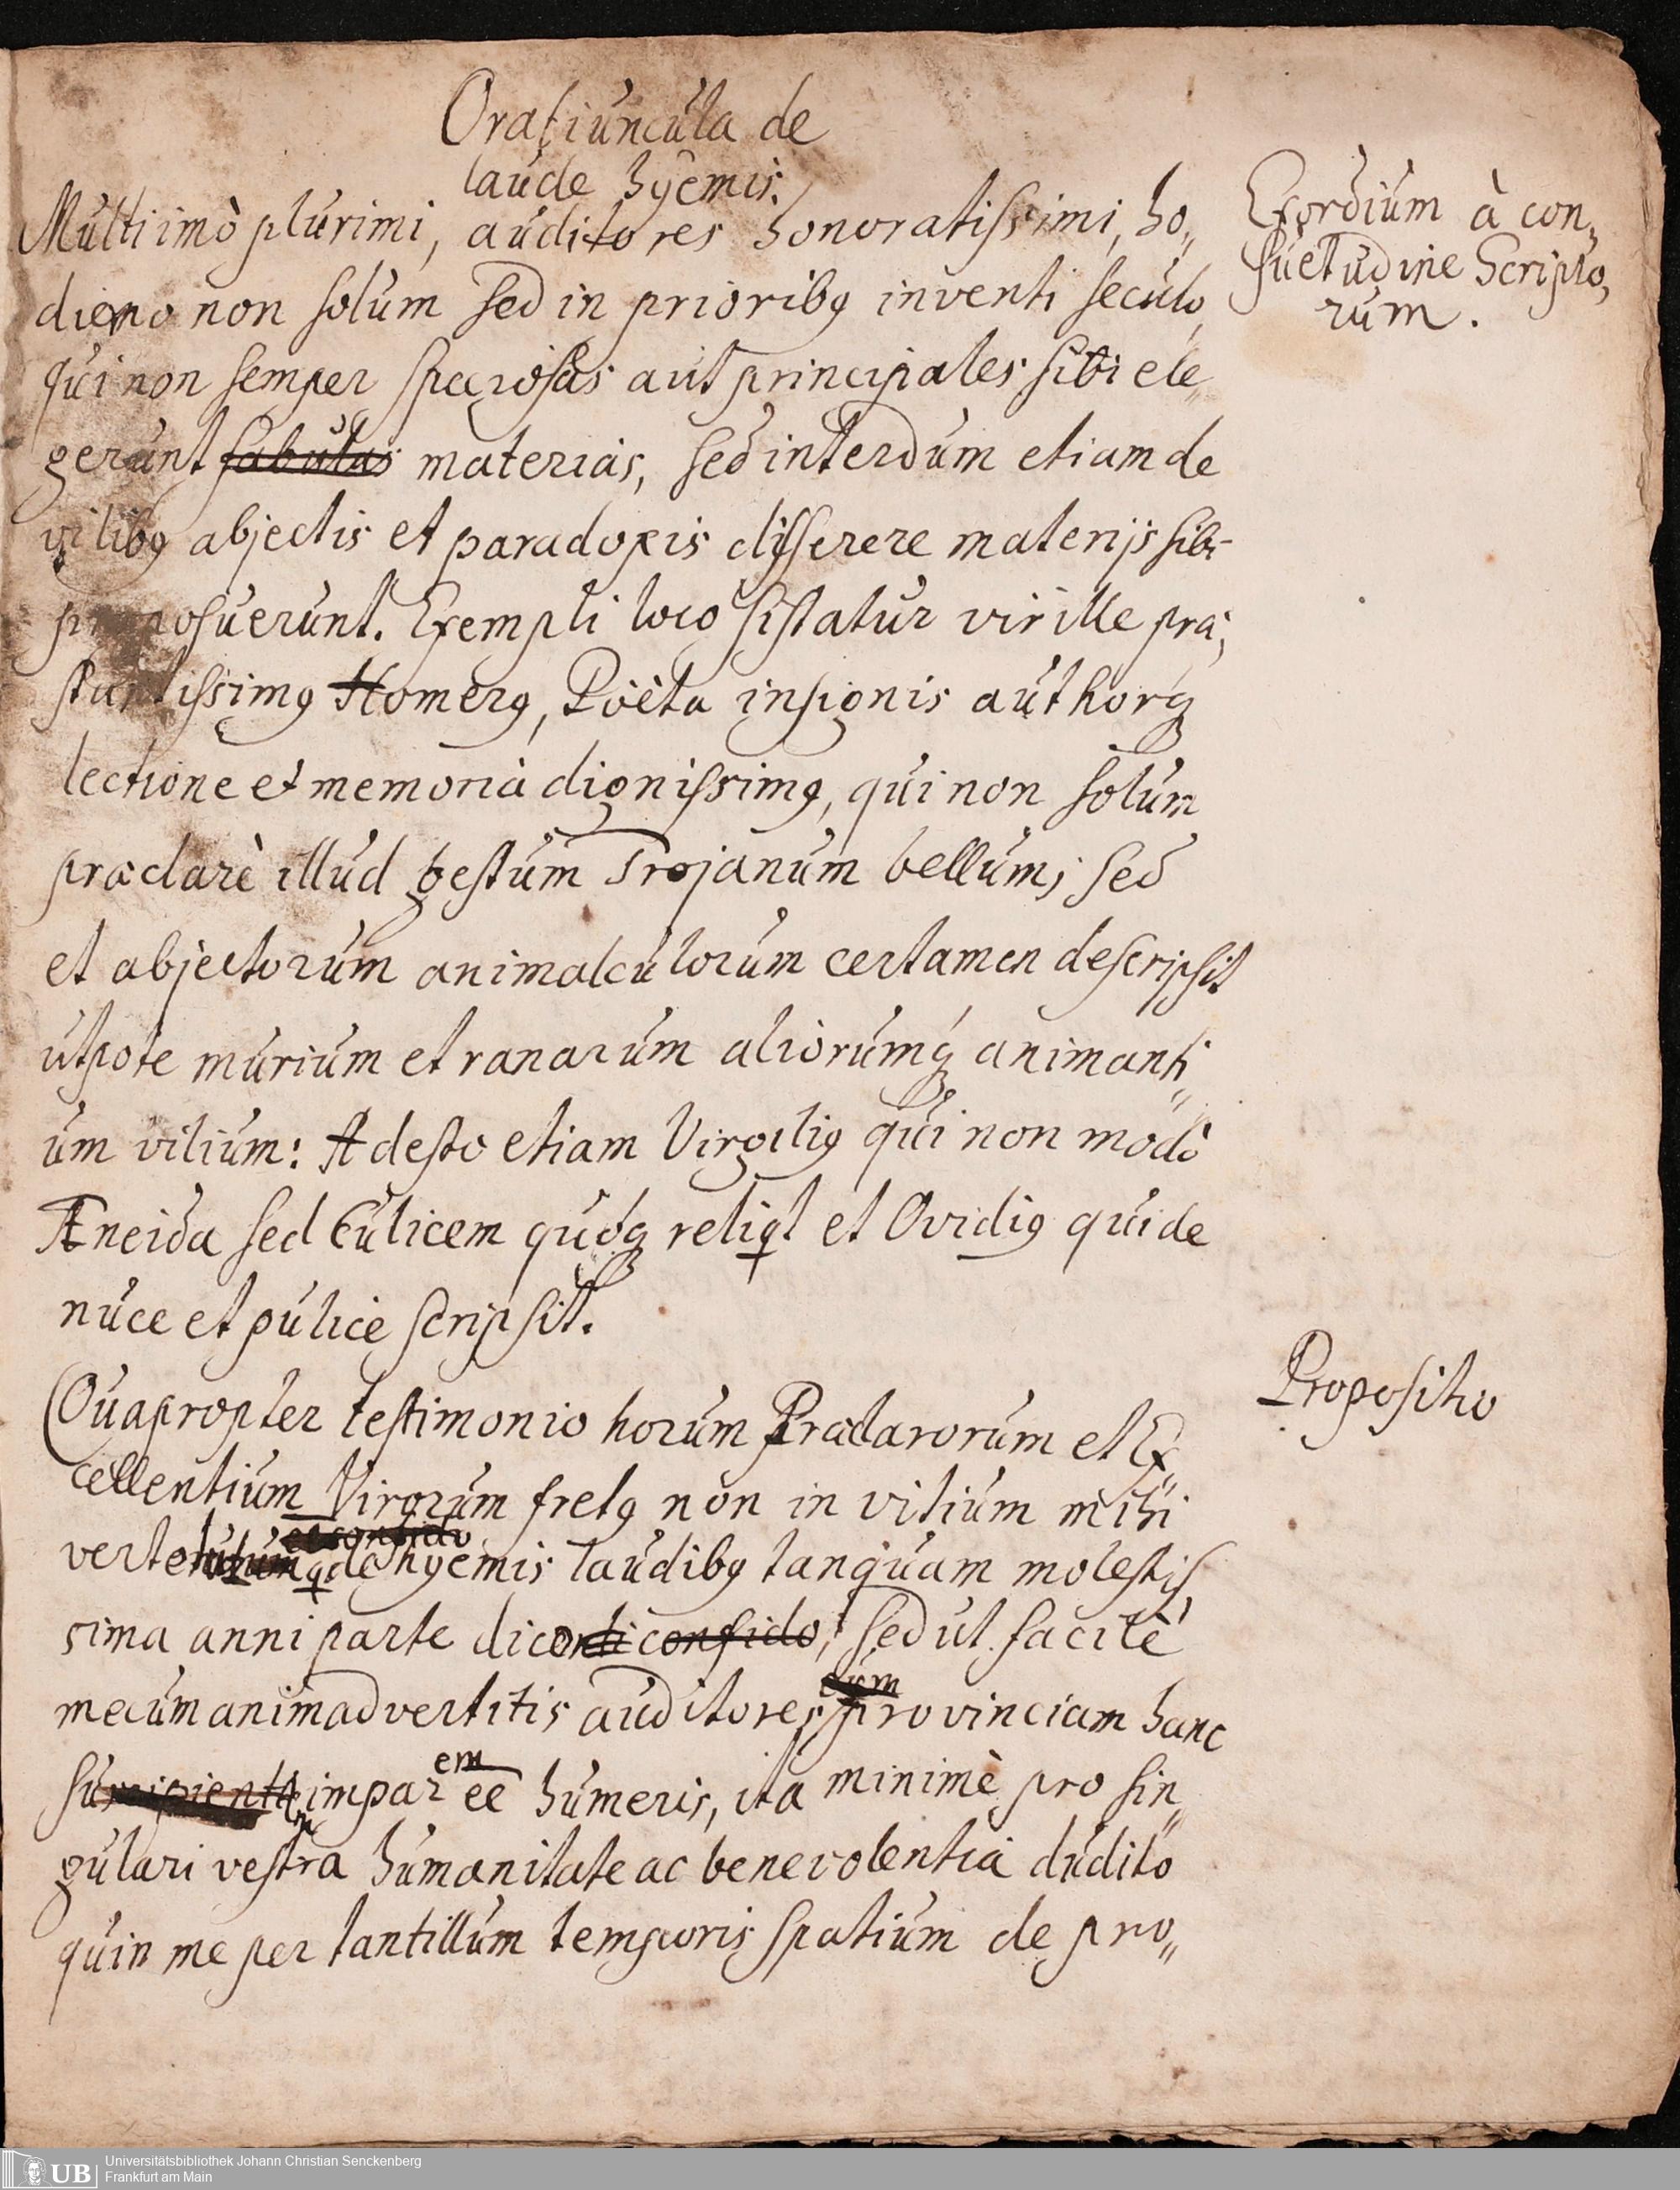 Oratiuncula de
laude hyemis.
Multi imò plurimi, auditores honoratissimi, ho„
dierno non solum sed in prioribꝰ inventi seculo,
qui non semper speciosas aut principales sibi ele„
gerunt fabulas materias, sed interdum etiam de
vilibꝰ abjectis et paradoxis disserere materijs sibi
proposuerunt. Exempli loco sistatur vir ille præ„
stantissimꝰ Homerꝰ, Poëta insignis authorq́
lectione et memoriâ dignissimꝰ, qui non solum
præclarè illud gestum Trojanum bellum; sed
et abjectorum animalculorum certamen descripsit
utpote murium et ranarum aliorumq́ animanti„
um vilium: Adesto etiam Virgiliꝰ qui non modò
Æneida sed Culicem quoq́ reliqt et Ovidiꝰ qui de
nuce et pulice scripsit.
Quapropter testimonio horum Præclarorum et Ex„
cellentium Virorum fretꝰ non in vitium mihi
et confido
verte de hyemis laudibꝰ tanquam molestis„
sima anni parte dico confido; sed ut facilè
cum
mecum animadvertitis auditores provinciam hanc
em
suscipienti impar ee humeris, ita minimè pro sin„
gulari vestra humanitate ac benevolentiâ dubito
quin me per tantillum temporis spatium de pro„
Exordium à con„
suetudine Scripto„
rum.
Propositio
UB
Universitätsbibliothek Johann Christian Senckenberg
Frankfurt am Main